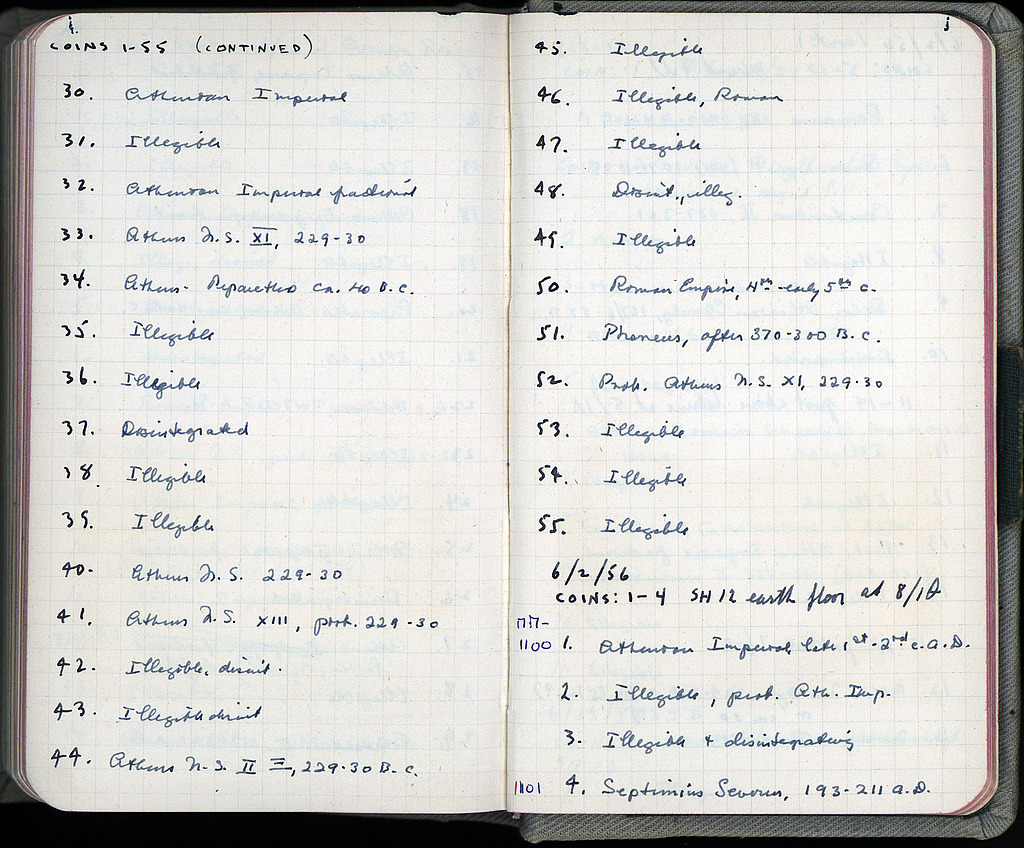 COINS 1-55 (CONTINUED)
30. Athenian Imperial
31. Illegible
32. Athenian Imperial fractional
33. Athens N.S. XI, 229-30
34. Athens - Peparethos ca. 40 B.C.
35. Illegible
36. Illegible
37. Disintegrated
38. Illegible
39. Illegible
40. Athens N.S. 229-30
41. Athens N.S. XIII, prob. 229-30
42. Illegible, disint.
43. Illegible disint
44. Athens N.S. II, 229-30 B.C.
45. Illegible
46. Illegible, Roman
47. Illegible
48. Disint., illeg.
49. Illegible
50. Roman Empire, 4th-early 5th c.
51. after 370-300 B.C.
52. Prob. Athens N.S. XI, 229-30
53. Illegible
54. Illegible
55. Illegible
6/2/56
COINS: 1-4 SH 12 earth floor at 8/ΙΑ
ΠΠ-
1100 1. Athenian Imperial late 1st-2nd c. A.D.
2. Illegible, prob. Ath. Imp.
3. Illegible + disintegrating
1101 4. Septimius Severus, 193-211 A.D.